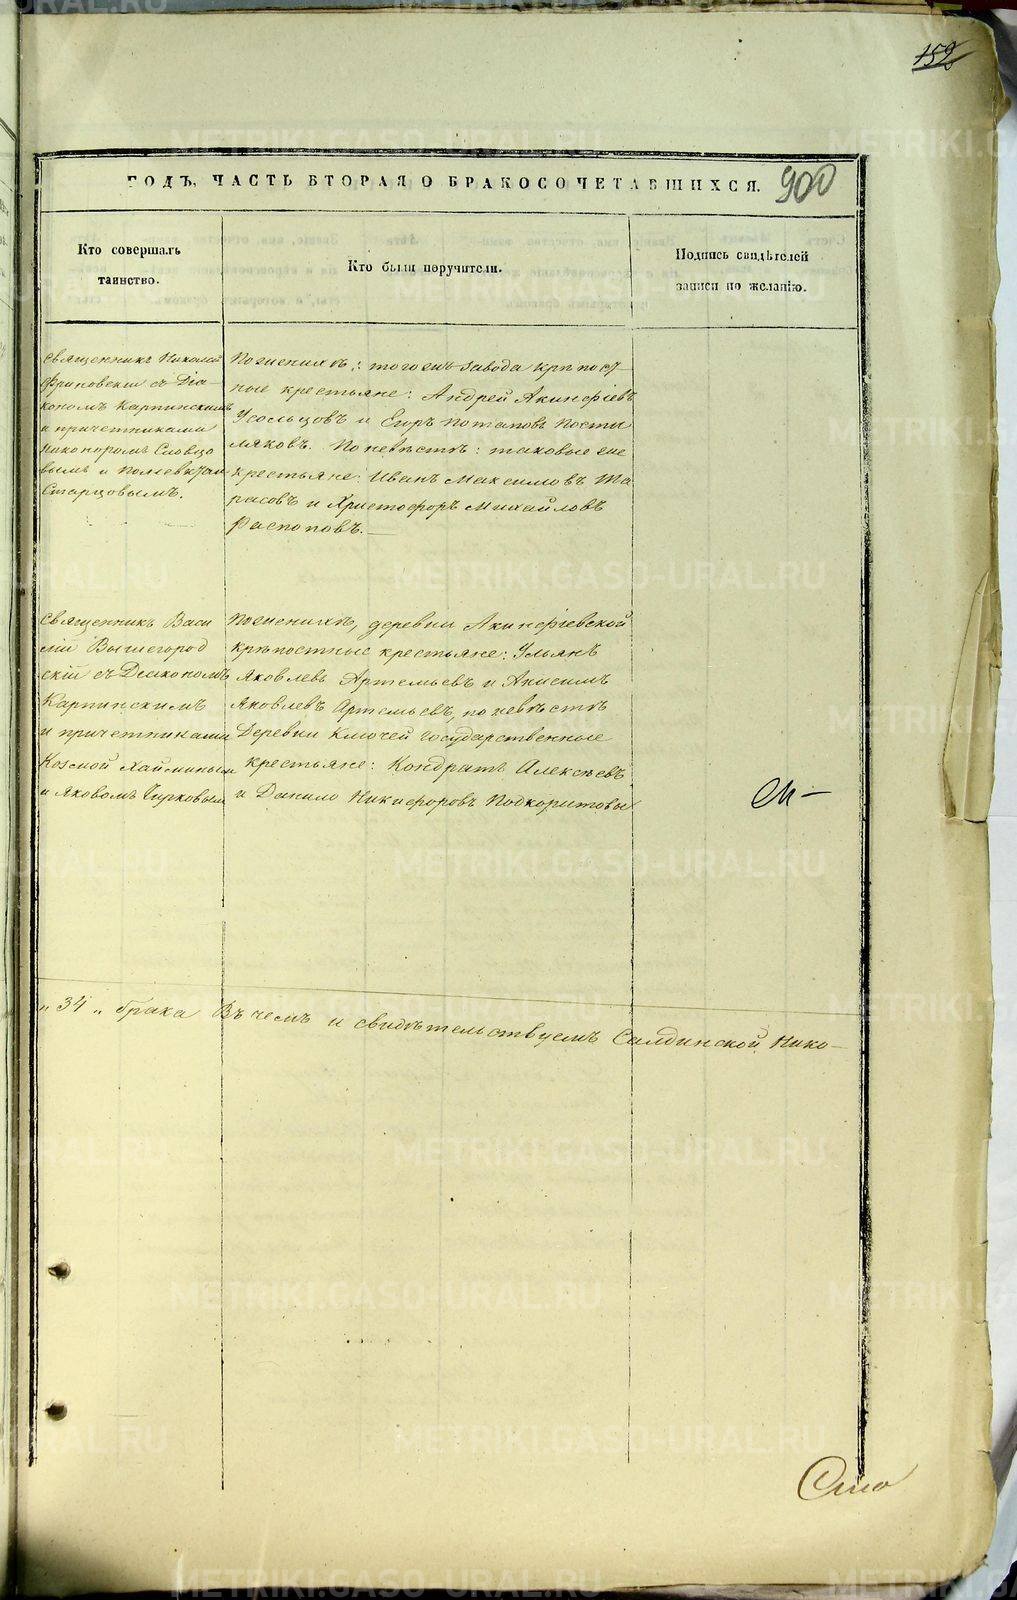 152
ГОДЪ, ЧАСТЬ ВТОРАЯ О БРАКОСОЧЕТАВШИХСЯ.
900
Кто совершалъ
таинство.
Кто были поручители.
Подпись свидѣтелей
записи по желанію.
Священникъ Николай
Флоровскій съ Діа-
кономъ Карпинскимъ
и причетниками
Никоноромъ Словцо
вымъ и
Старцовымъ.
По женихѣ: тогожъ завода крѣпост
ные крестьяне: Андрей Акинфіевъ
Усольцовъ и Егоръ Потаповъ Пости
ляковъ. По невѣстѣ: таковые же
крестьяне Иванъ Максимовъ Та
расовъ и Христофоръ Михайловъ
Распоповъ.—
Священникъ Васи
лій Вышегород
скій съ Діакономъ
Карпинскимъ
и причетниками
Козмой Хайминымъ
и Яковомъ Чирковымъ
По женихѣ, деревни Акинфіевской
крѣпостные крестьяне: Ульянъ
Яковлевъ Артемьевъ и Анисимъ
Яковлевъ Артемьевъ, по невѣстѣ
Деревни Ключей государственные
крестьяне: Кондратъ Алексѣевъ
и Данило Никифоровъ Подкорытовы
„ 34 „ брака Въ чемъ и свидѣтельствуемъ Салдинской Нико-
Сто
METRIKI.GASO-URAL.RU